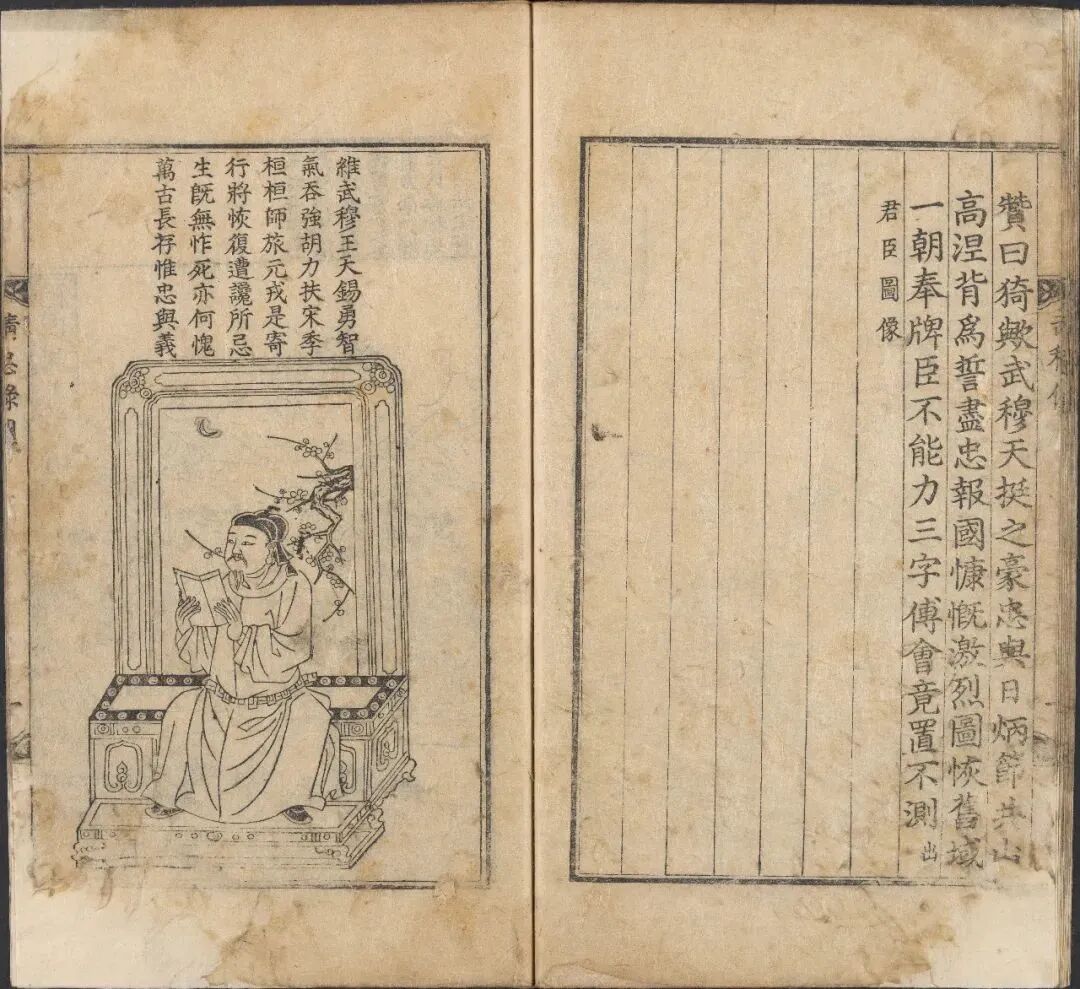 贊曰猗歟武穆天挺之豪忠與日炳節共山
高涅背爲誓盡忠報國慷慨激烈圖恢舊域
一朝奉牌臣不能力三字傅會竟置不測出
君臣圖像
維武穆王天錫勇智
氣吞強胡力扶宋季
桓桓師旅元戎是寄
行將恢復遭讒所忌
生旣無怍死亦何愧
萬古長存惟忠與義
忠錄